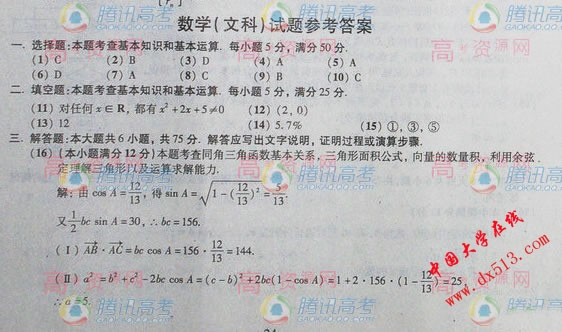 数学(文科)试题参考答案
一. 选择题:本题考查基本知识和基本运算. 每小题5分, 满分50分.
(1) C (2) B (3) D (4) A (5) A
(6) D (7) A (8) C (9) B (10) C
二. 填空题:本题考查基本知识和基本运算. 每小题5分, 满分25分.
(11) 对任何 x∈R, 都有 x²+2x+5≠0 (12) (2, 0)
(13) 12 (14) 5.7% (15) ①, ③, ⑤
三. 解答题:本大题共6小题, 共75分. 解答应写出文字说明, 证明过程或演算步骤.
(16) (本小题满分12分)本题考查同角三角函数基本关系, 三角形面积公式, 向量的数量积, 利用余弦
定理解三角形以及运算求解能力.
解: 由 cos A=12/13, 得 sin A=√(1-(12/13)²)=5/13.
又 1/2 bc sin A=30, ∴ bc=156.
(Ⅰ) AB→ · AC→=bc cos A=156 · 12/13=144.
(Ⅱ) a²=b²+c²-2bc cos A=(c-b)²+2bc(1-cos A)=1+2 · 156 · (1-12/13)=25,
∴ a=5.
中国大学在线
www.dx513.com
腾讯高考
GAOKAO.QQ.COM
高考资源网